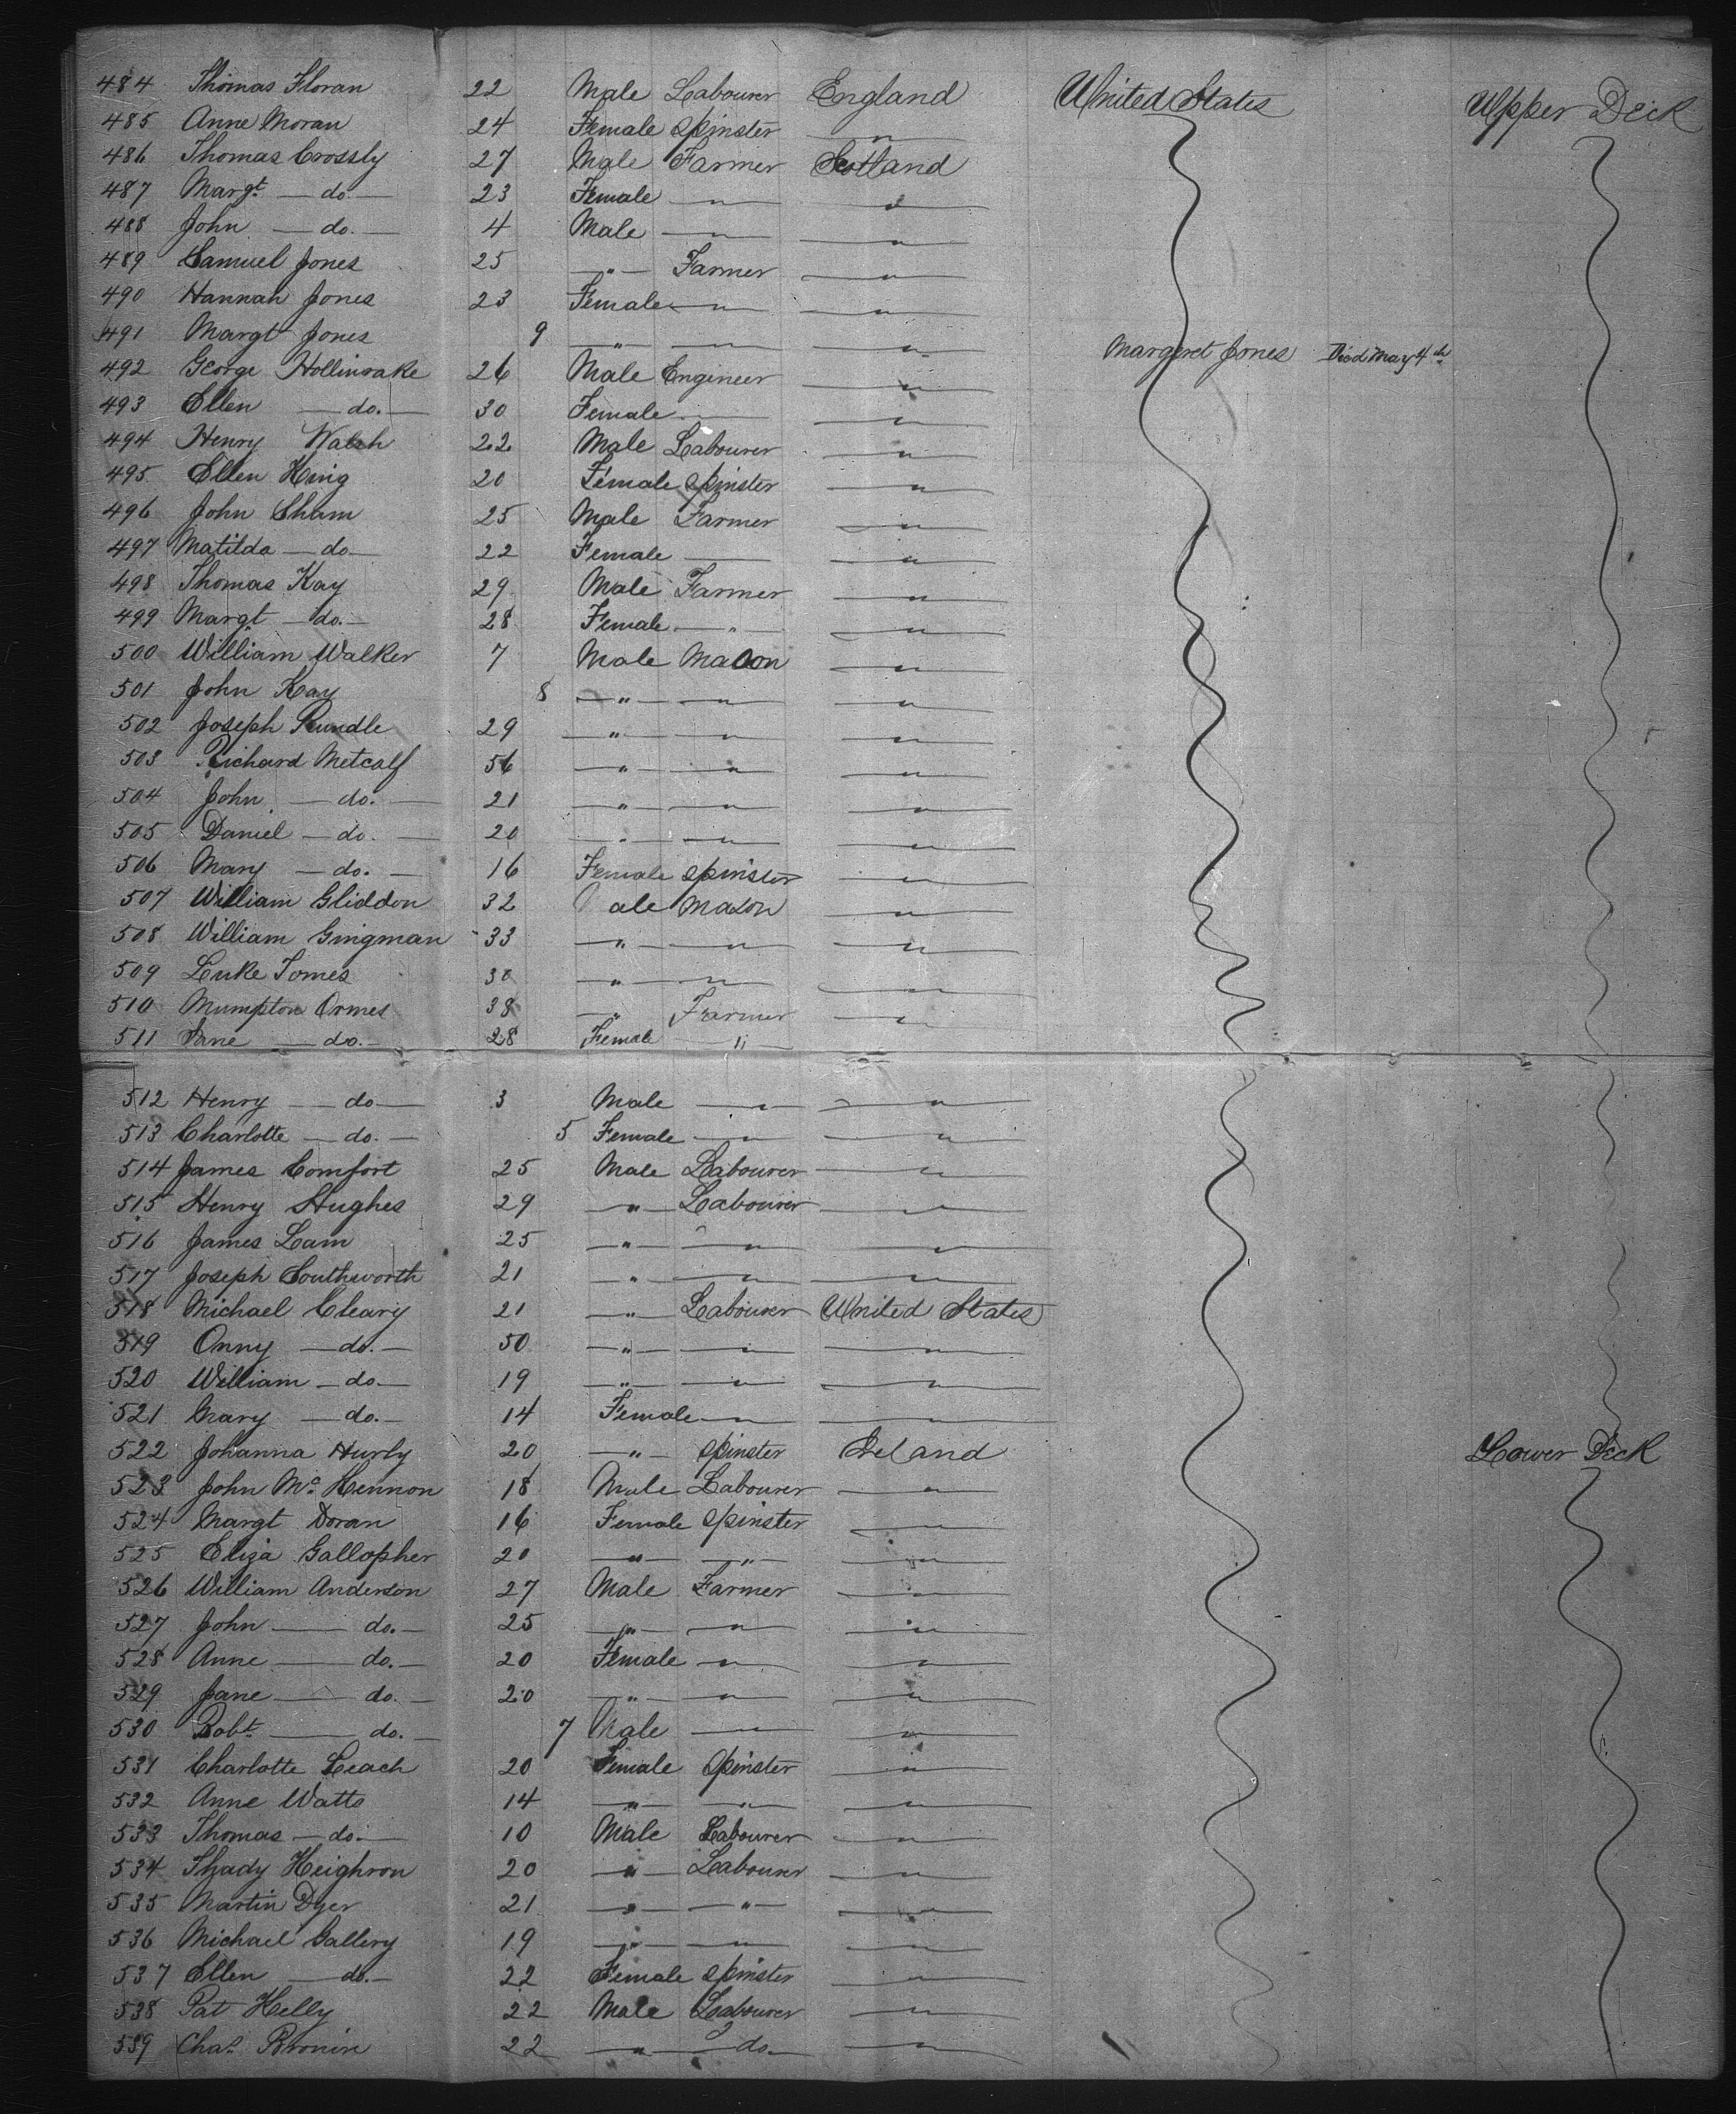 484 Thomas Floran 22 Male Labourer England United States Upper Deck
485 Anne Moran 24 Female Spinster — " —
486 Thomas Crossly 27 Male Farmer Scotland
487 Margt — do. — 23 Female — " — — " —
488 John — do. — 4 Male — " — — " —
489 Samuel Jones 25 — " — Farmer — " —
490 Hannah Jones 23 Female — " — — " —
491 Margt Jones 9 — " — — " — — " — Margeret Jones Died May 4th
492 George Hollinrake 26 Male Engineer — " —
493 Ellen — do. — 30 Female — — " —
494 Henry Walsh 22 Male Labourer — " —
495 Ellen King 20 Female Spinster — " —
496 John Sham 25 Male Farmer — " —
497 Matilda — do — 22 Female — — " —
498 Thomas Kay 29 Male Farmer — " —
499 Margt — do. — 28 Female — " — — " —
500 William Walker 7 Male Mason — " —
501 John Kay 8 — " — — " — — " —
502 Joseph Rundle 29 — " — — " — — " —
503 Richard Metcalf 56 — " — — " — — " —
504 John — do. — 21 — " — — " — — " —
505 Daniel — do. — 20 — " — — " — — " —
506 Mary — do. — 16 Female Spinster — " —
507 William Gliddon 32 Male Mason — " —
508 William Gingman 33 — " — — " — — " —
509 Luke Tomes 30 — " — — " — — " —
510 Mumpton Ormes 38 — " — Farmer — " —
511 Jane — do. — 28 Female — " —
512 Henry — do — 3 Male — " — — " —
513 Charlotte — do. — 5 Female — " — — " —
514 James Comfort 25 Male Labourer — " —
515 Henry Hughes 29 — " — Labourer — " —
516 James Lam 25 — " — — " — — " —
517 Joseph Southworth 21 — " — — " — — " —
518 Michael Cleary 21 — " — Labourer United States
519 Onny — do. — 50 — " — — " — — " —
520 William — do — 19 — " — — " — — " —
521 Mary — do. — 14 Female — " — — " —
522 Johanna Hurly 20 — " — Spinster Ireland Lower Deck
523 John Mc Kennon 18 Male Labourer — " —
524 Margt Doran 16 Female Spinster — " —
525 Eliza Gallopher 20 — " — — " — — " —
526 William Anderson 27 Male Farmer — " —
527 John — do. — 25 — " — — " — — " —
528 Anne — do. — 20 Female — " — — " —
529 Jane — do. — 20 — " — — " — — " —
530 Robt — do. — 7 Male — " — — " —
531 Charlotte Leach 20 Female Spinster — " —
532 Anne Watts 14 — " — — " — — " —
533 Thomas — do. — 10 Male Labourer — " —
534 Thady Heighron 20 — " — Labourer — " —
535 Martin Dyer 21 — " — — " — — " —
536 Michael Gallery 19 — " — — " — — " —
537 Ellen — do. — 22 Female Spinster — " —
538 Pat Kelly 22 Male Labourer — " —
539 Chas Bronin 22 — " — do — " —